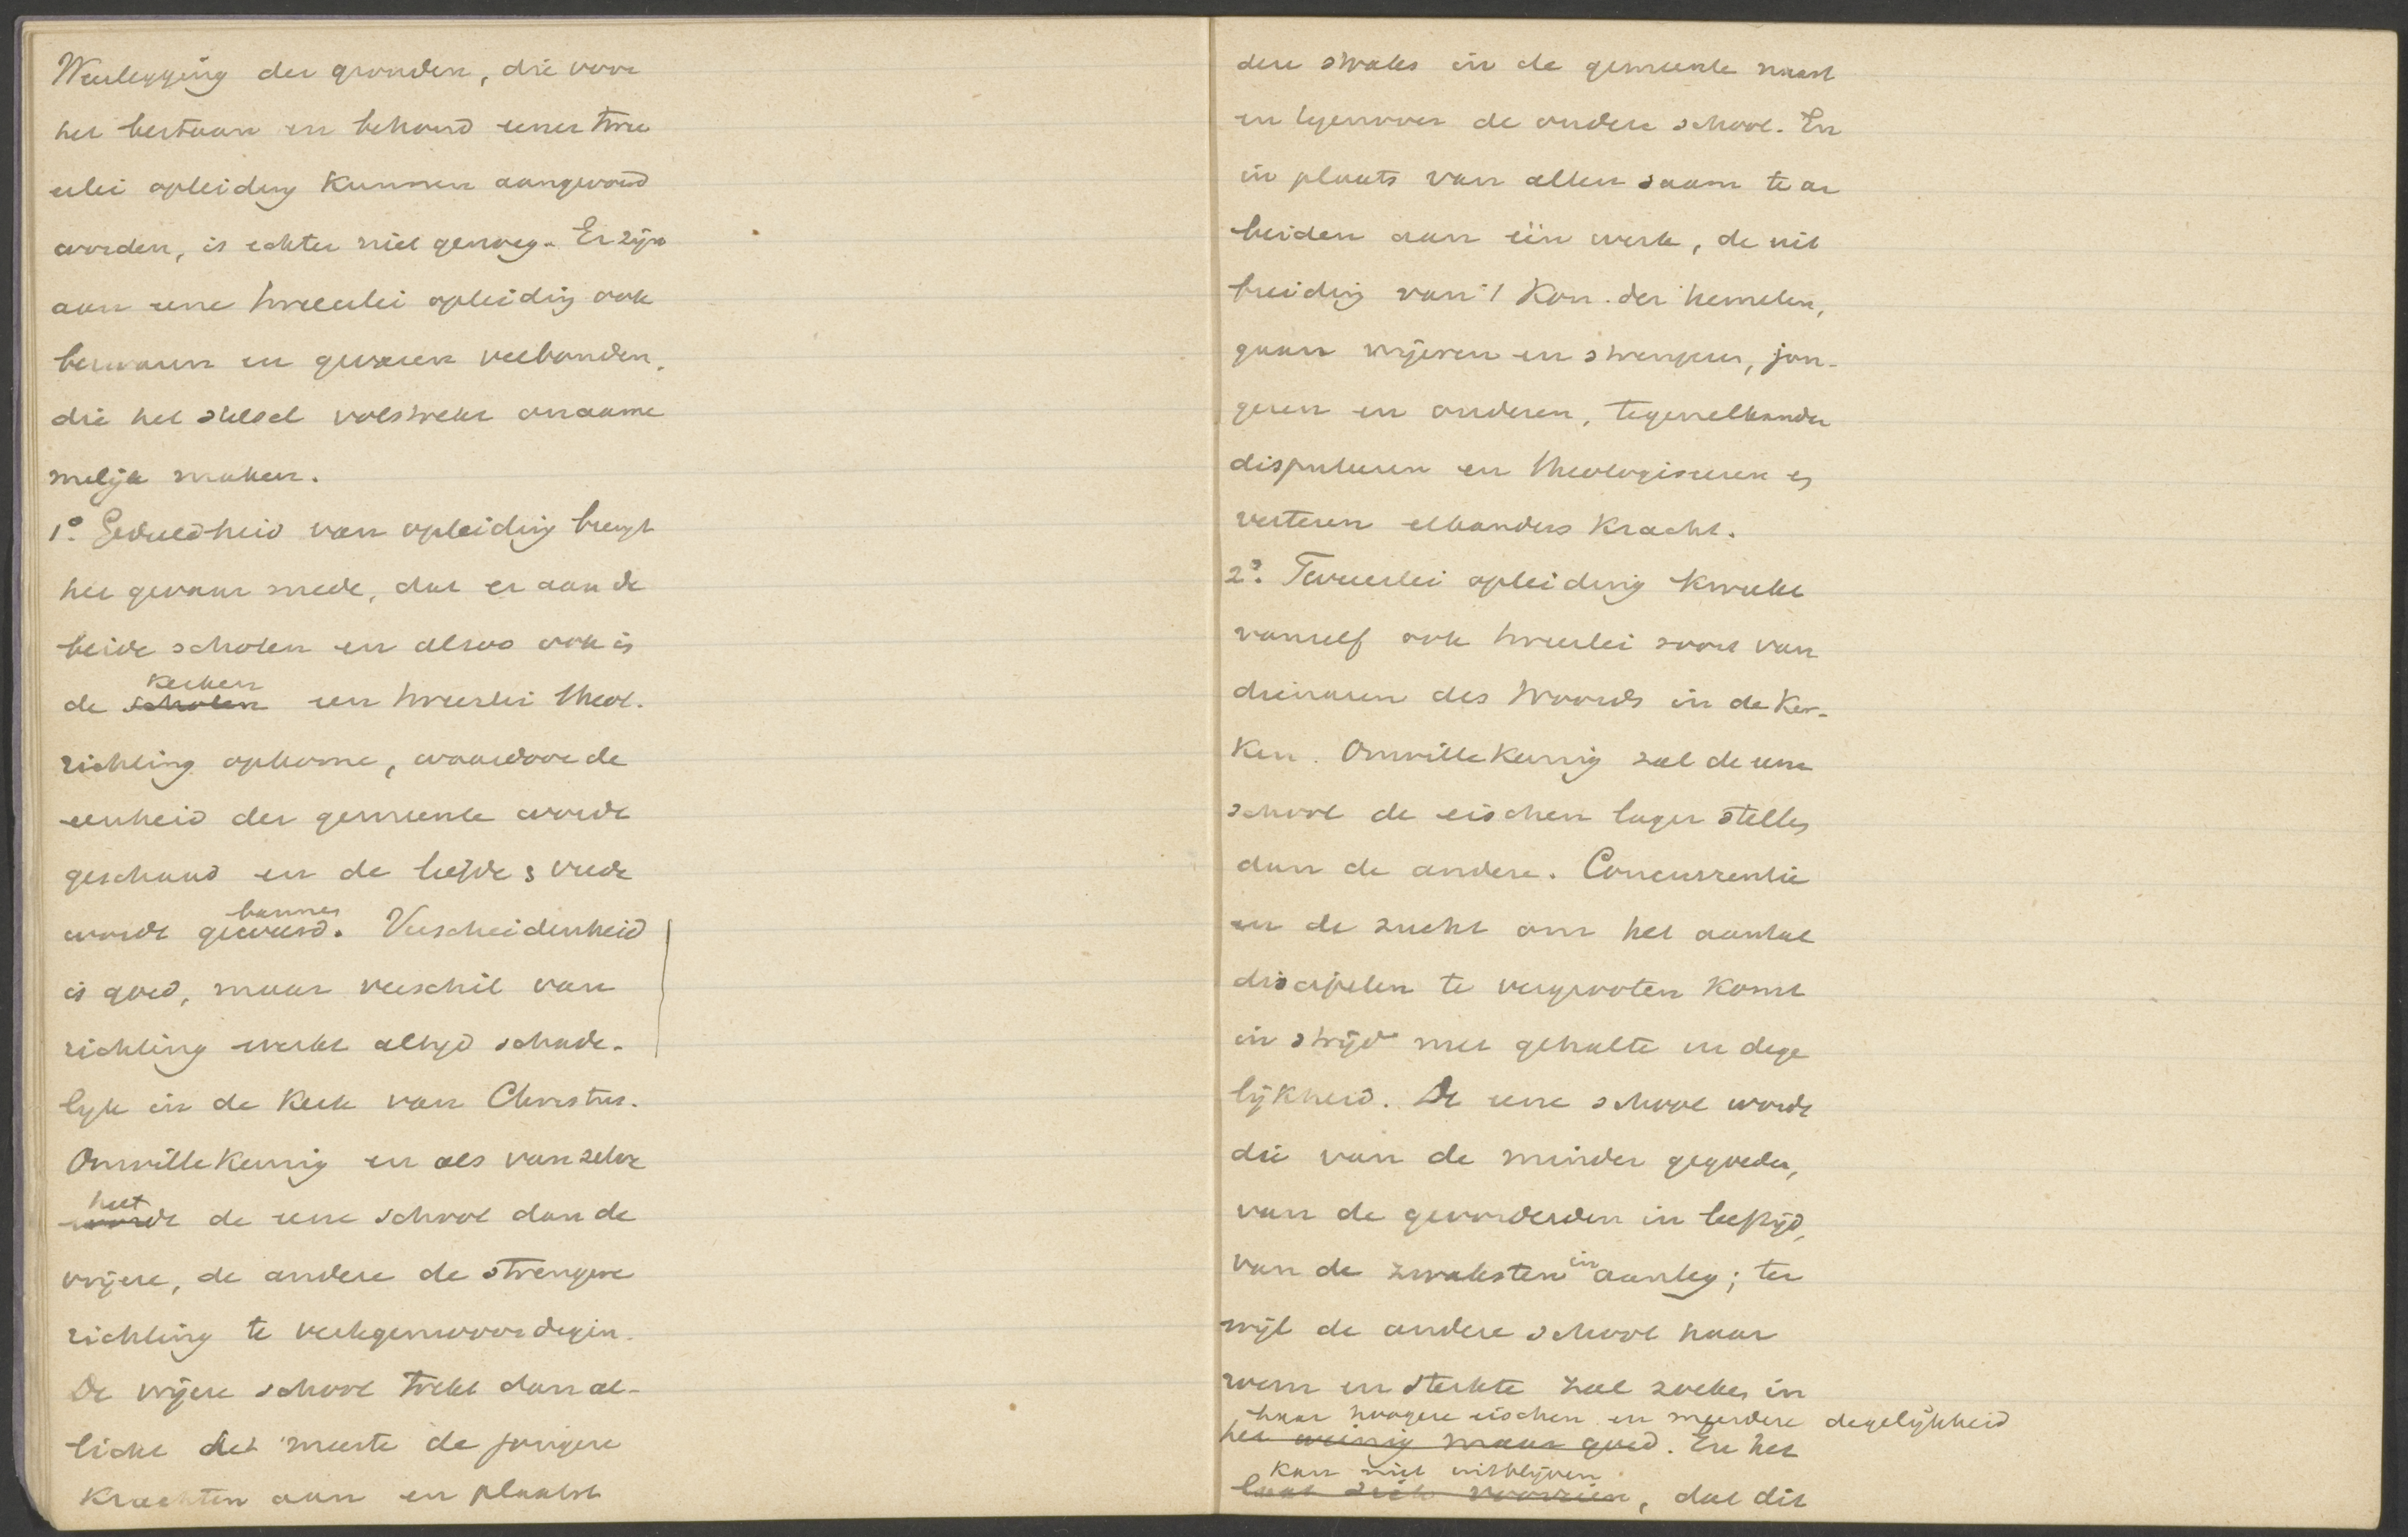 Weerlegging der gronden, die voor
het bestaan en behoud eener twee
erlei opleiding kunnen aangevoerd
worden, is echter niet genoeg. Er zijn
aan eene tweeërlei opleiding ook
bezwaren en gevaren verbonden,
die het stelsel volstrekt onaanne
melijk maken.
1o. Gedeeldheid van opleiding brengt
het gevaar mede, dat er aan de
beide scholen en alzoo ook in
kerken
de scholen een tweeërlei theol.
richting opkome, waardoor de
eenheid der gemeente worde
geschaad en de liefde & vrede
bannen
worde geweerd. Verscheidenheid
is goed, maar verschil van
richting werkt altijd schade-
lijk in de Kerk van Christus.
Onwillekeurig en als vanzelve
heet
worde de eene school dan de
vrijere, de andere de strengere
richting te vertegenwoordigen.
De vrijere school trekt dan al-
licht het meeste de jongere
krachten aan en plaatst
deze straks in de gemeente naast
en tegenover de oudere school. En
in plaats van allen saam te ar
beiden aan één werk, de uit
breiding van 't Kon. der hemelen,
gaan vrijeren en strengeren, jon-
geren en ouderen, tegen elkander
disputeren en theologiseren en
verteren elkanders kracht.
2o. Tweeërlei opleiding kweekt
vanzelf ook tweeërlei soort van
dienaren des Woords in de Ker-
ken. Onwillekeurig zal de eene
school de eischen lager stellen
dan de andere. Concurrentie
en de zucht om het aantal
discipelen te vergrooten komt
in strijd met gehalte en dege
lijkheid. De eene school worde
die van de minder gegoeden,
van de gevorderden in leeftijd,
van de zwaksten in aanleg; ter
wijl de andere school haar
roem en sterkte zal zoeken in
haar hoogere eischen en meerdere degelijkheid
het weinig maar goed. En het
kan niet uitblijven
laat zich voorzien, dat dit